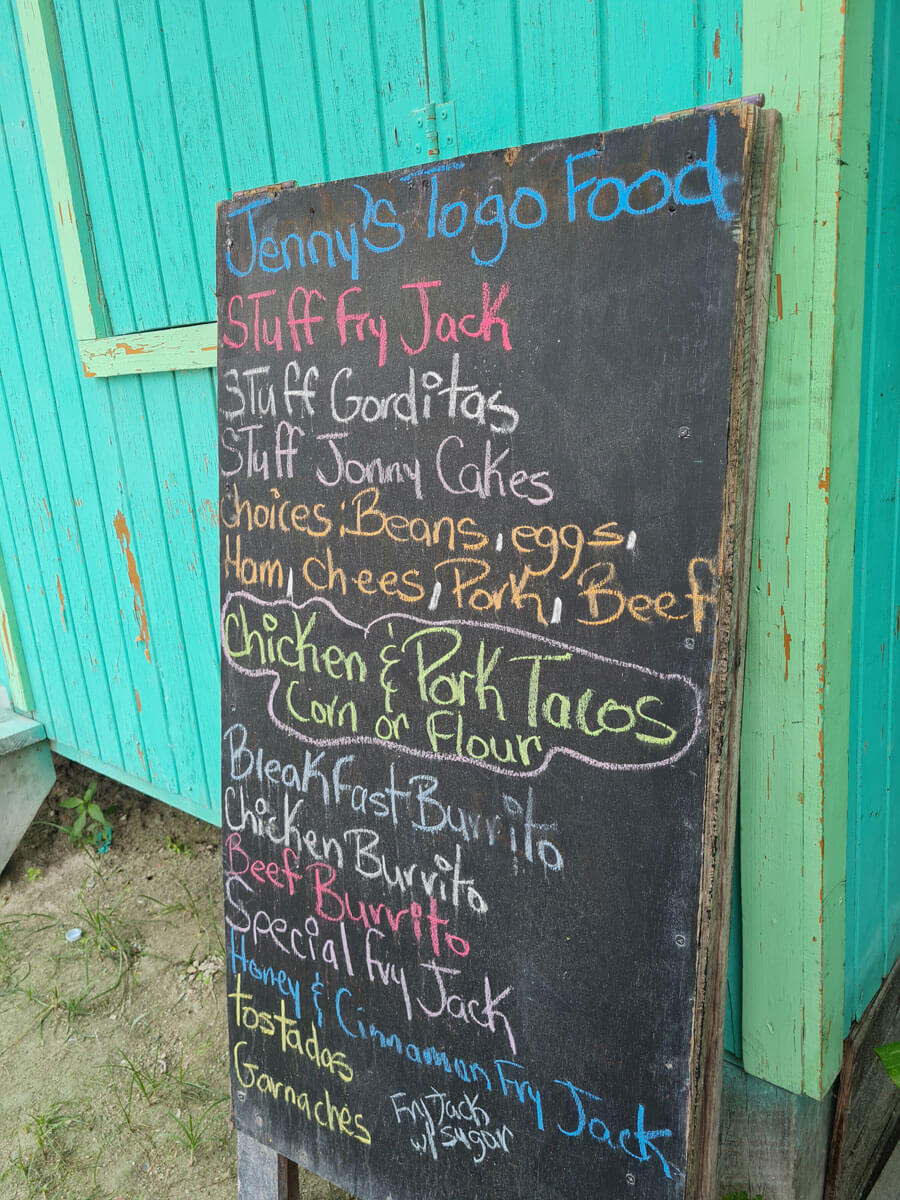 Jenny's Togo Food
Stuff Fry Jack
Stuff Gorditas
Stuff Jonny Cakes
Choices: Beans, eggs,
Ham, chees, Pork, Beef
Chicken & Pork Tacos
Corn or Flour
Bleakfast Burrito
Chicken Burrito
Beef Burrito
Special Fry Jack
Honey & Cinnamon Fry Jack
tostadas
Garnaches
Fry Jack
w/ sugar